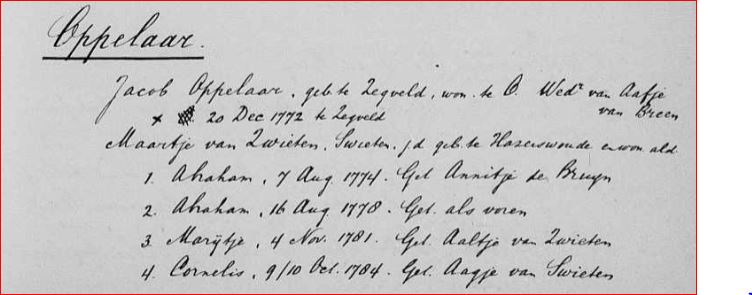 Oppelaar.
Jacob Oppelaar, geb. te Zegveld, won. te O. Wedr van Aafje
van Breen
x 20 Dec 1772 te Zegveld
Maartje van Zwieten, Swieten. jd geb. te Hazerswoude en won ald.
1. Abraham, 7 Aug 1774. Get Annitje de Bruyn
2. Abraham, 16 Aug 1778. Get. als voren
3 Marijtje, 4 Nov. 1781. Get. Aaltje van Zwieten
4. Cornelis, 9/10 Oct. 1784. Get. Aagje van Swieten